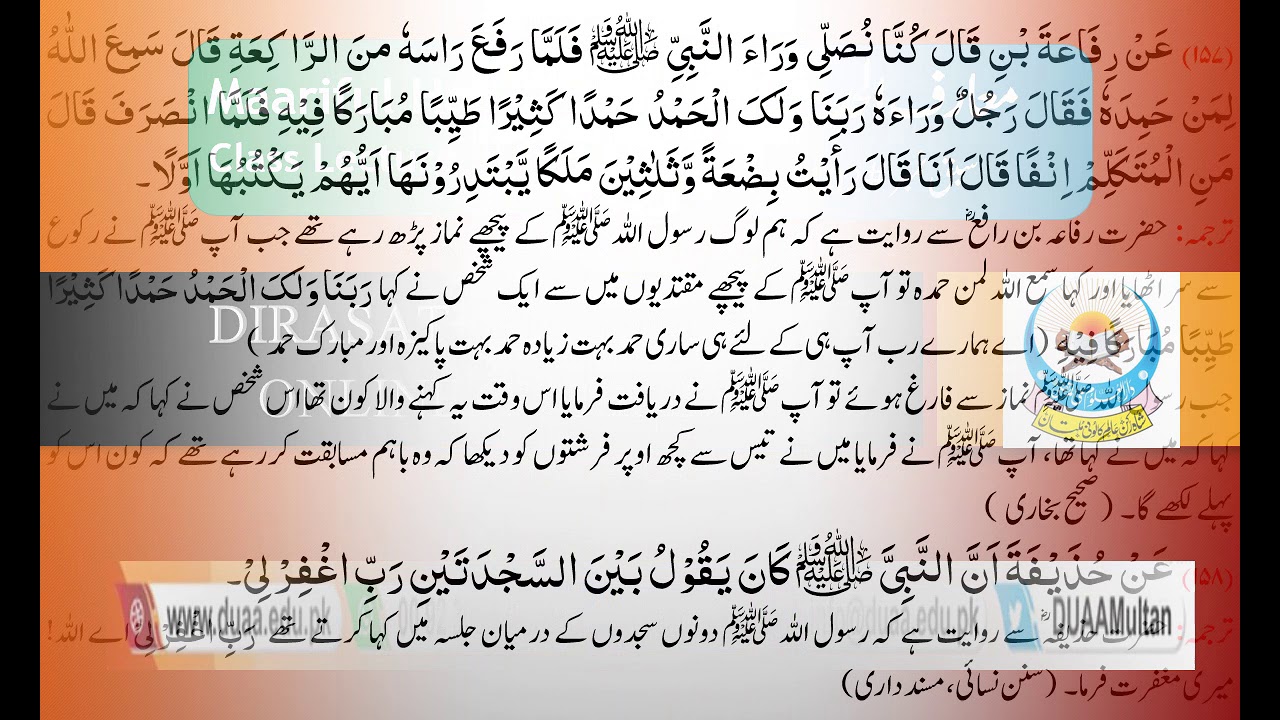 (۱۵۷) عَنْ رِفَاعَةَ بْنِ قَالَ كُنَّا نُصَلِّى وَرَاءَ النَّبِىِّ ﷺ فَلَمَّا رَفَعَ رَاسَهٗ مِنَ الرَّاكِعَةِ قَالَ سَمِعَ اللهُ
لِمَنْ حَمِدَهٗ فَقَالَ رَجُلٌ وَرَاءَهٗ رَبَنَا وَلَکَ الْحَمْدُ حَمْدًا كَثِيْرًا طَيِّبًا مُبَارَكًا فِيْهِ فَلَمَّا انْصَرَفَ قَالَ
مَنِ الْمُتَكَلِّمِ اِنْفًا قَالَ اَنَا قَالَ رَأَيْتُ بِضْعَةً وَّثَلٰثِيْنَ مَلَكًا يَّبْتَدِرُوْنَهَا اَيُّهُمْ يَكْتُبُهَا اَوَّلًا۔
ترجمہ: حضرت رفاعہ بن رافعؓ سے روایت ہے کہ ہم لوگ رسول اللہ ﷺ کے پیچھے نماز پڑھ رہے تھے جب آپ ﷺ نے رکوع
سے سر اٹھایا اور کہا سمع اللہ لمن حمدہ تو آپ ﷺ کے پیچھے مقتدیوں میں سے ایک شخص نے کہا رَبَنَا وَلَکَ الْحَمْدُ حَمْدًا كَثِيْرًا
طَيِّبًا مُبَارَكًا فِيْهِ (اے ہمارے رب آپ ہی کے لئے ہی ساری حمد بہت زیادہ حمد بہت پاکیزہ اور مبارک حمد)
جب رسول اللہ ﷺ نماز سے فارغ ہوئے تو آپ ﷺ نے دریافت فرمایا اس وقت یہ کہنے والا کون تھا اس شخص نے کہا کہ میں نے
کہا کہ میں نے کہا تھا، آپ ﷺ نے فرمایا میں نے تیس سے کچھ اوپر فرشتوں کو دیکھا کہ وہ باہم مسابقت کر رہے تھے کہ کون اس کو
پہلے لکھے گا۔ (صحیح بخاری)
(۱۵۸) عَنْ حُذَيْفَةَ اَنَّ النَّبِىَّ ﷺ كَانَ يَقُوْلُ بَيْنَ السَّجْدَتَيْنِ رَبِّ اغْفِرْ لِىْ۔
ترجمہ: حضرت حذیفہؓ سے روایت ہے کہ رسول اللہ ﷺ دونوں سجدوں کے درمیان جلسہ میں کہا کرتے تھے رَبِّ اغْفِرْ لِی اے اللہ!
میری مغفرت فرما۔ (سنن نسائی، مسند دارى)
DIRASAT
ONLIN
www.duaa.edu.pk
@duaa.edu.pk
DUAAMultan